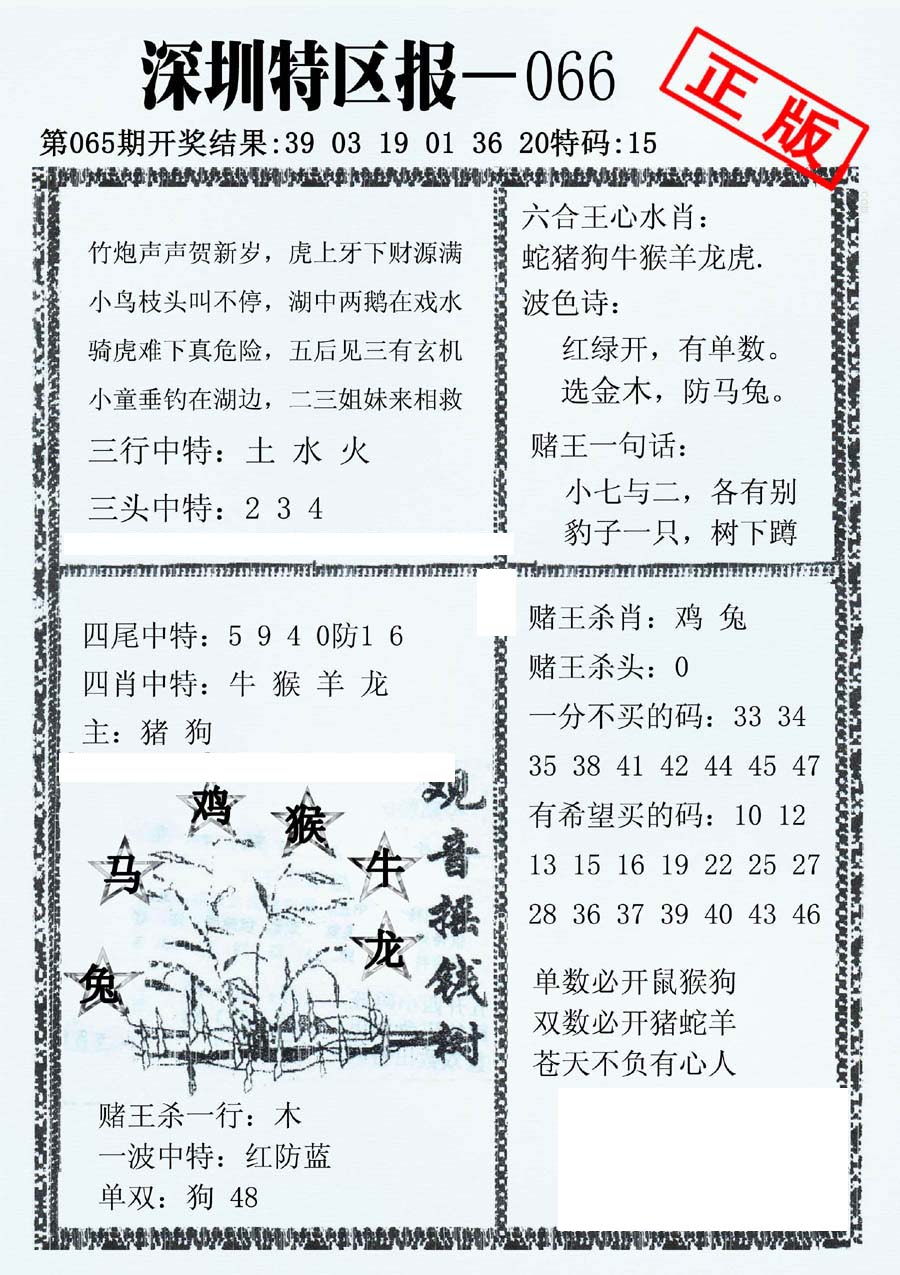 深圳特区报—066
正版
第065期开奖结果:39 03 19 01 36 20特码:15
竹炮声声贺新岁，虎上牙下财源满
小鸟枝头叫不停，湖中两鹅在戏水
骑虎难下真危险，五后见三有玄机
小童垂钓在湖边，二三姐妹来相救
三行中特：土 水 火
三头中特：2 3 4
六合王心水肖：
蛇猪狗牛猴羊龙虎.
波色诗：
红绿开，有单数。
选金木，防马兔。
赌王一句话：
小七与二，各有别
豹子一只，树下蹲
四尾中特：5 9 4 0防1 6
四肖中特：牛 猴 羊 龙
主：猪 狗
鸡
猴
马
牛
龙
兔
观音摇钱树
赌王杀一行：木
一波中特：红防蓝
单双：狗 48
赌王杀肖：鸡 兔
赌王杀头：0
一分不买的码：33 34
35 38 41 42 44 45 47
有希望买的码：10 12
13 15 16 19 22 25 27
28 36 37 39 40 43 46
单数必开鼠猴狗
双数必开猪蛇羊
苍天不负有心人